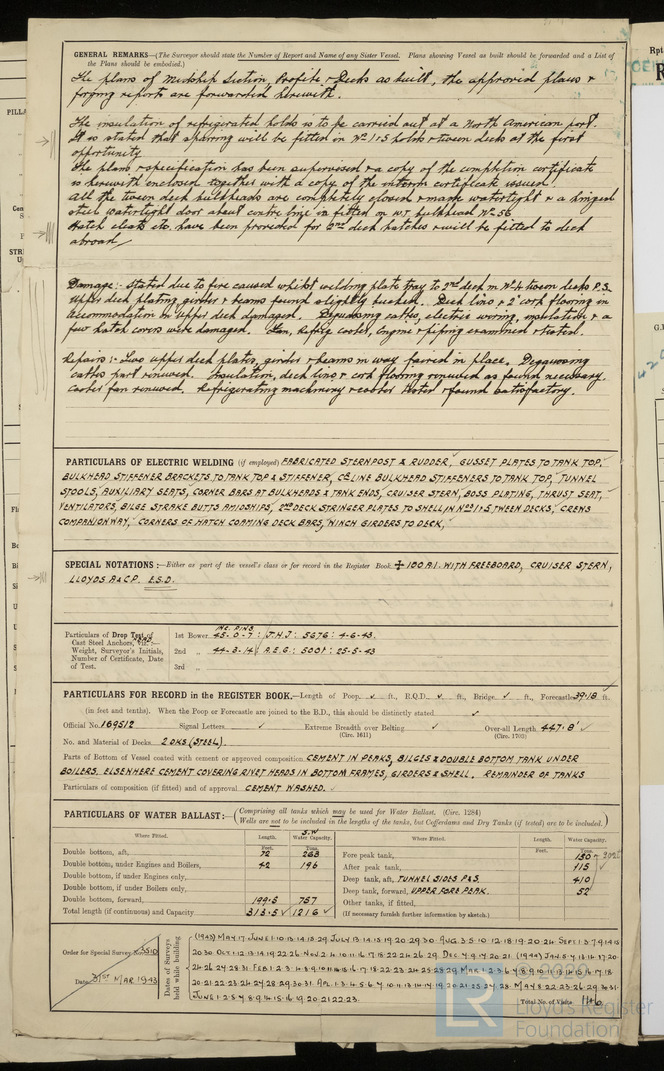 GENERAL REMARKS—(The Surveyor should state the Number of Report and Name of any Sister Vessel. Plans showing Vessel as built should be forwarded and a List of
the Plans should be embodied.)
The plans of Midship Section, Profile & Decks as built, the approved plans &
forging reports are forwarded herewith.
The insulation of refrigerated holds is to be carried out at a North American port.
It is stated that sparring will be fitted in Nº 1 & 5 holds & tween decks at the first
opportunity
The plans & specification has been supervised & a copy of the completion certificate
is herewith enclosed together with a copy of the interim certificate issued.
All the tween deck bulkheads are completely closed & made watertight & a hinged
steel watertight door about centre line is fitted in W.T. bulkhead Nº 56
Hatch cleats etc. have been provided for 2nd deck hatches & will be fitted to deck
abroad
Damage:- Stated due to fire caused whilst welding plate tray to 2nd deck in Nº 4 tween decks P.S.
Upper deck plating, girder & beams found slightly buckled. Deck lino & 2" cork flooring in
accommodation on Upper deck damaged. Degaussing cables, electric wiring, insulation & a
few hatch covers were damaged. Fan, Refrig cooler, engine & piping examined & tested.
Repairs:- Two upper deck plates, girder & beams in way faired in place. Degaussing
cables part renewed. Insulation, deck lino & cork flooring renewed as found necessary.
Cooler fan renewed. Refrigerating machinery & cooler tested & found satisfactory.
PARTICULARS OF ELECTRIC WELDING (if employed) FABRICATED STERNPOST & RUDDER, GUSSET PLATES TO TANK TOP,
BULKHEAD STIFFENER BRACKETS TO TANK TOP & STIFFENER, C. LINE BULKHEAD STIFFENERS TO TANK TOP, TUNNEL
STOOLS, AUXILIARY SEATS, CORNER BARS AT BULKHEADS & TANK ENDS, CRUISER STERN, BOSS PLATING, THRUST SEAT,
VENTILATORS, BILGE STRAKE BUTTS AMIDSHIPS, 2ND DECK STRINGER PLATES TO SHELL IN Nos 1 & 5 TWEEN DECKS, CREWS
COMPANIONWAY, CORNERS OF HATCH COAMING DECK BARS, WINCH GIRDERS TO DECK,
SPECIAL NOTATIONS:—Either as part of the vessel's class or for record in the Register Book. ✠ 100 A.1. WITH FREEBOARD, CRUISER STERN,
LLOYDS A & C P. E.S.D.
Particulars of Drop Test of
Cast Steel Anchors, viz.:—
Weight, Surveyor's Initials,
Number of Certificate, Date
of Test.
INC. PINS
1st Bower 45-0-7 : J.H.J : 5676 : 4-6-43.
2nd „ 44-3-14 : A.E.G : 5001 : 25-5-43
3rd „
PARTICULARS FOR RECORD in the REGISTER BOOK.—Length of Poop ✓ ft., R.Q.D. ✓ ft., Bridge ✓ ft., Forecastle 39.18 ft.
(in feet and tenths). When the Poop or Forecastle are joined to the B.D., this should be distinctly stated ✓
Official No. 169512 Signal Letters ✓ Extreme Breadth over Belting ✓ Over-all Length 447.8'
(Circ. 1611) (Circ. 1703)
No. and Material of Decks 2 DKS (STEEL)
Parts of Bottom of Vessel coated with cement or approved composition CEMENT IN PEAKS, BILGES & DOUBLE BOTTOM TANK UNDER
BOILERS. ELSEWHERE CEMENT COVERING RIVET HEADS IN BOTTOM FRAMES, GIRDERS & SHELL. REMAINDER OF TANKS
Particulars of composition (if fitted) and of approval CEMENT WASHED.
PARTICULARS OF WATER BALLAST:—(Comprising all tanks which may be used for Water Ballast. (Circ. 1284)
Wells are not to be included in the lengths of the tanks, but Cofferdams and Dry Tanks (if tested) are to be included.)
Where Fitted. Length. S.W Water Capacity. Where Fitted. Length. Water Capacity.
Feet. Tons. Feet. Tons.
Double bottom, aft, 72 263 Fore peak tank, 150
Double bottom, under Engines and Boilers, 42 196 After peak tank, 115
Double bottom, if under Engines only, Deep tank, aft, TUNNEL SIDES P&S 410
Double bottom, if under Boilers only, Deep tank, forward, UPPER FORE PEAK. 52
Double bottom, forward, 199.5 757 Other tanks, if fitted,
Total length (if continuous) and Capacity 313.5 1216 (If necessary furnish further information by sketch.)
Order for Special Survey No. 3510
Date 31ST MAR 1943
Dates of Surveys held while building
(1943) MAY 17 JUNE 1.10.13.14.15.29 JULY 13.14.15.19.20.29.30. AUG 3.5.10.12.18.19.20.24. SEPT 1.3.7.9.14.15
20.30 OCT
JUNE 1.2.5.7.8.9.14.15.16.19.20.21.22.23.
Total No. of Visits 146
© 2020
LR
Lloyd's Register
Foundation